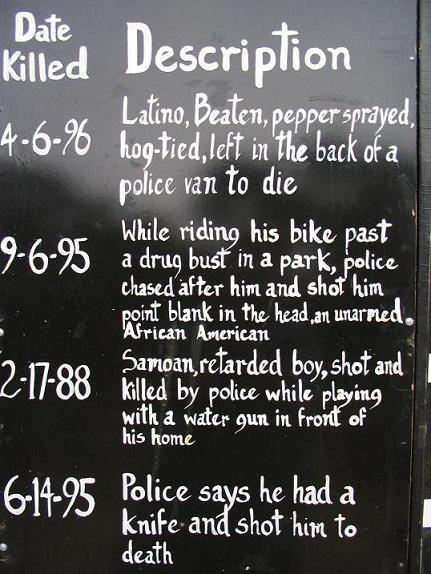 Date Killed Description
4-6-96 Latino, Beaten, pepper sprayed,
hog-tied, left in the back of a
police van to die
9-6-95 While riding his bike past
a drug bust in a park, police
chased after him and shot him
point blank in the head, an unarmed
African American
2-17-88 Samoan, retarded boy, shot and
killed by police while playing
with a water gun in front of
his home
6-14-95 Police says he had a
knife and shot him to
death